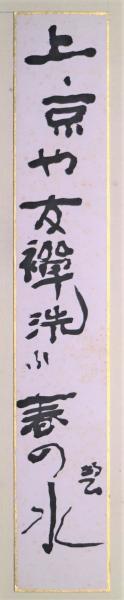 上京や友禅洗ふ春の水